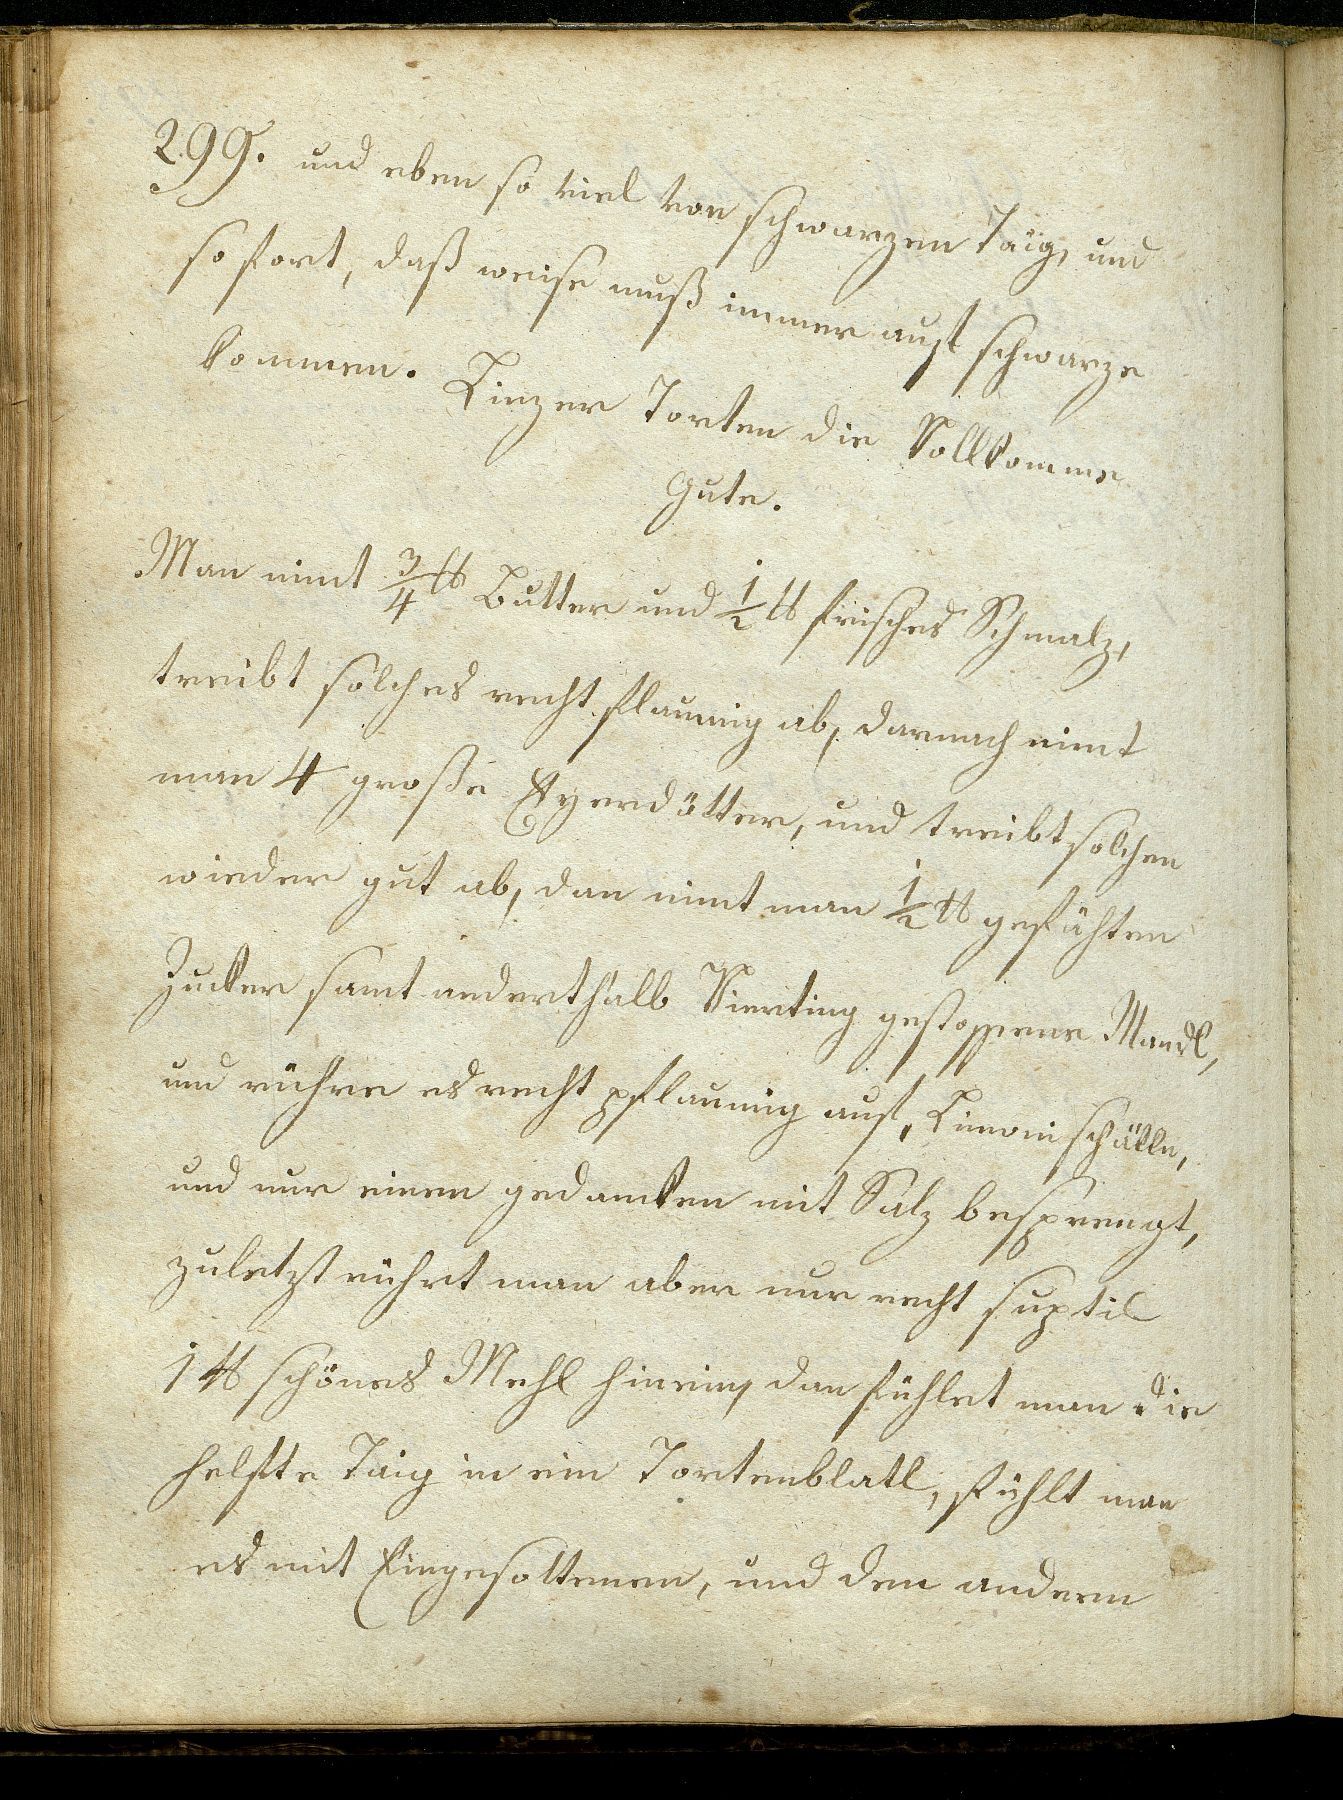 299. und eben so viel von schwarzen Taig, und
so fort, daß weise muß immer aufs schwarze
kommen.
Linzer Torten die Vollkomme
Gute.
Man nimt 3/4 ℔ Butter und 1/2 ℔ frisches Schmalz,
treibt solches recht flaumig ab, darnach nimt
man 4 große Eyerdötter, und treibt solchen
wieder gut ab, dan nimt man 1/2 ℔ gefähten
Zucker samt anderthalb Vierting gestossene Mandl,
und rühre es recht pflaumig auf, Limonischälln,
und nur einen gedancken mit Salz besprengt,
zuletzt rührt man aber nur recht suptil
1 ℔ schönes Mehl hinein, dan fühlet man die
helfte Taig in ein Tortenblatl, fühlt man
es mit Eingesottenen, und den andern